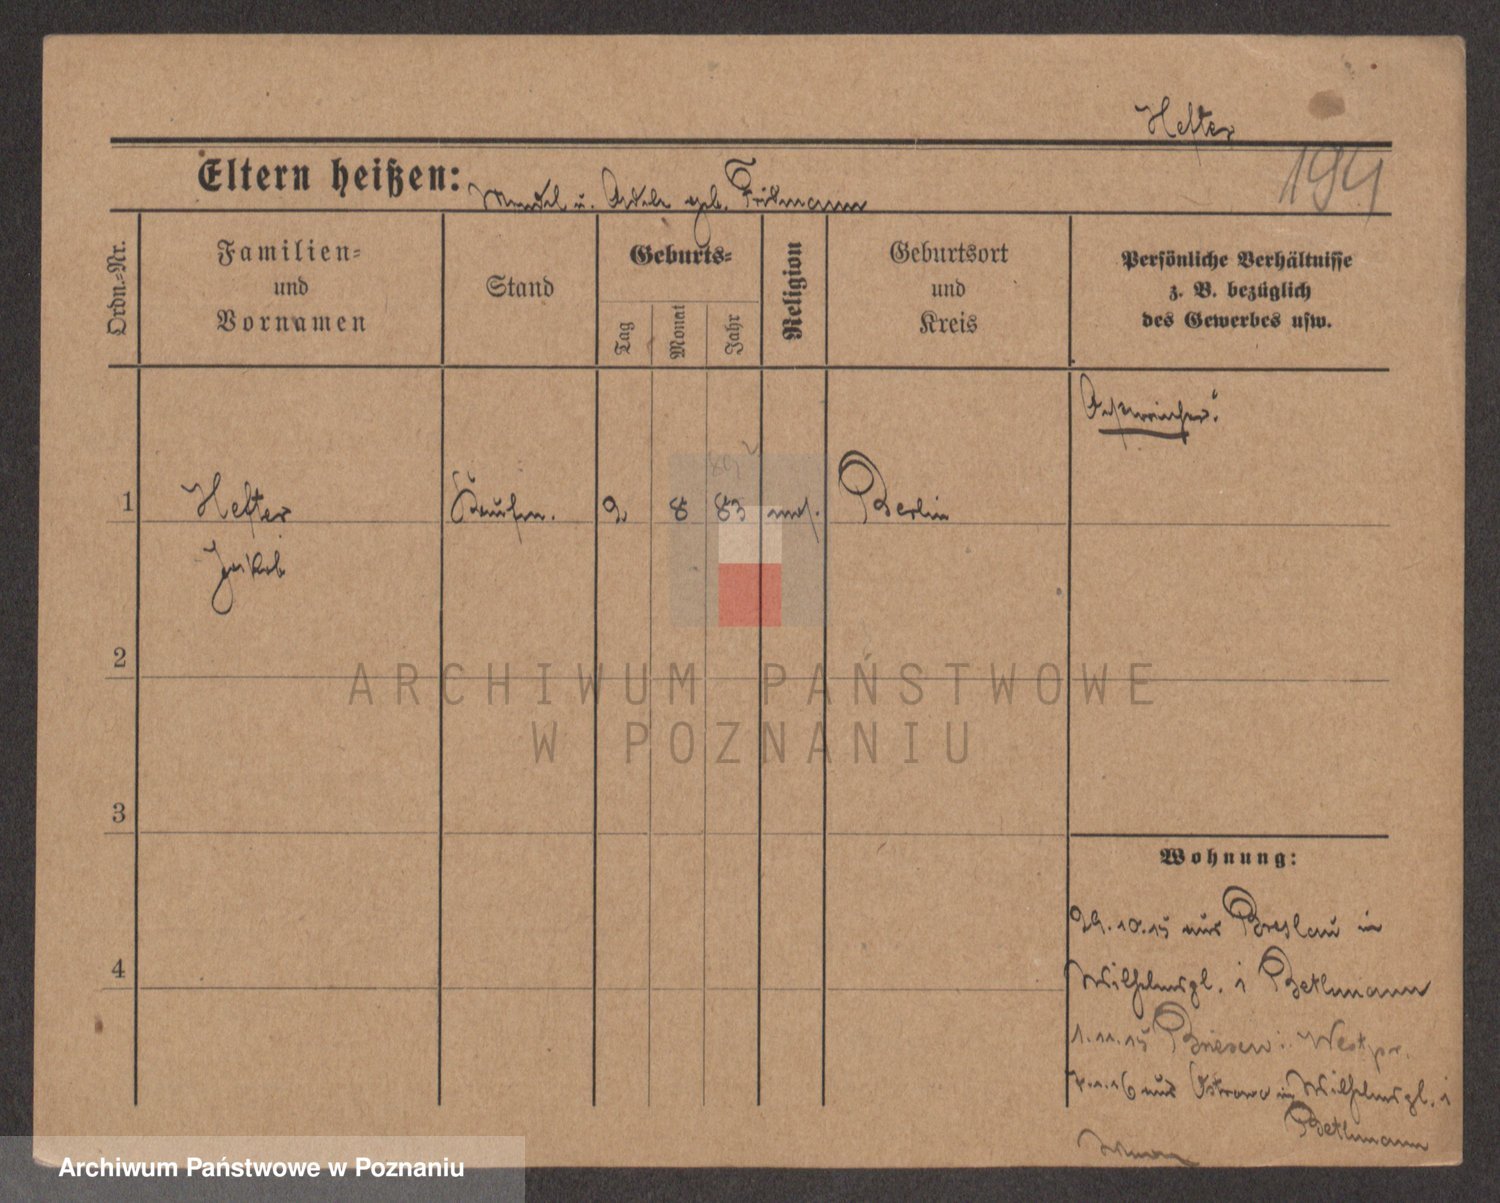 Hefter
194
Eltern heißen: Mendel u. Adele geb. Fridmann
Ordn.-Nr.
Familien-
und
Vornamen
Stand
Geburts-
Tag
Monat
Jahr
Religion
Geburtsort
und
Kreis
Persönliche Verhältnisse
z. B. bezüglich
des Gewerbes usw.
Österreicher.
1 Hefter Kaufm. 2 8 83 mos. Berlin
Jakob
2
3
4
Wohnung:
29.10.15 aus Breslau in
Wilhelmspl. 1 Bethmann
1.11.15 Briesen i. Westpr.
7.1.16 aus Ostrowo in Wilhelmspl. 1
Bethmann
ARCHIWUM PAŃSTWOWE
W POZNANIU
Archiwum Państwowe w Poznaniu